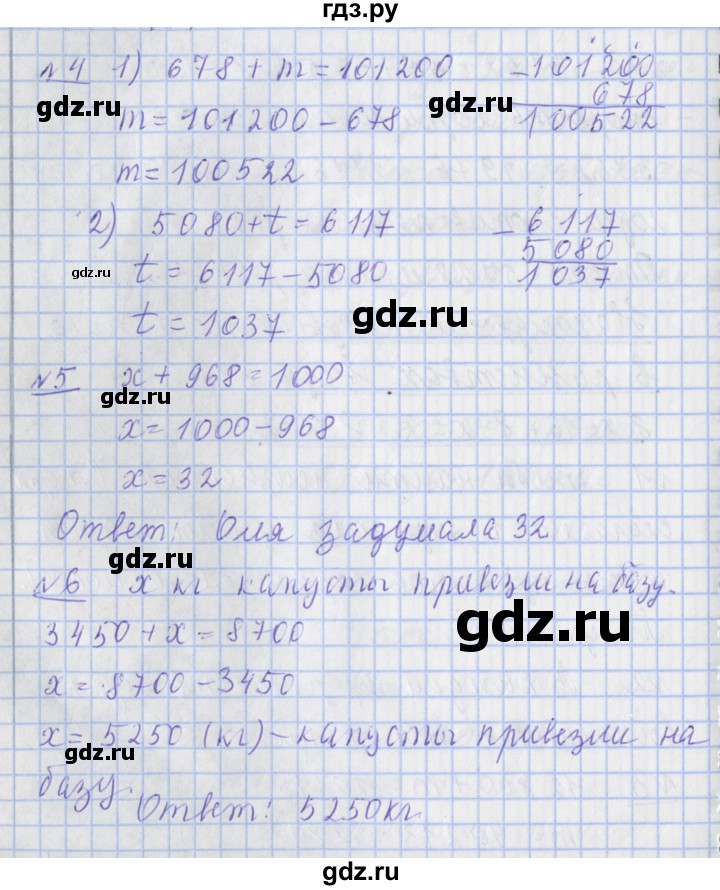 гдз.ру
№4 1) 678 + m = 101200
m = 101200 - 678
m = 100522
- 101200
678
100522
2) 5080 + t = 6117
t = 6117 - 5080
t = 1037
- 6117
5080
1037
№5 x + 968 = 1000
x = 1000 - 968
x = 32
Ответ: Оля задумала 32
№6 x кг капусты привезли на базу.
3450 + x = 8700
x = 8700 - 3450
x = 5250 (кг) - капусты привезли на
базу.
Ответ: 5250 кг.
gdz.ru
gdz.ru
gdz.ru
gdz.ru
gdz.ru
gdz.ru
gdz.ru
gdz.ru
gdz.ru
gdz.ru